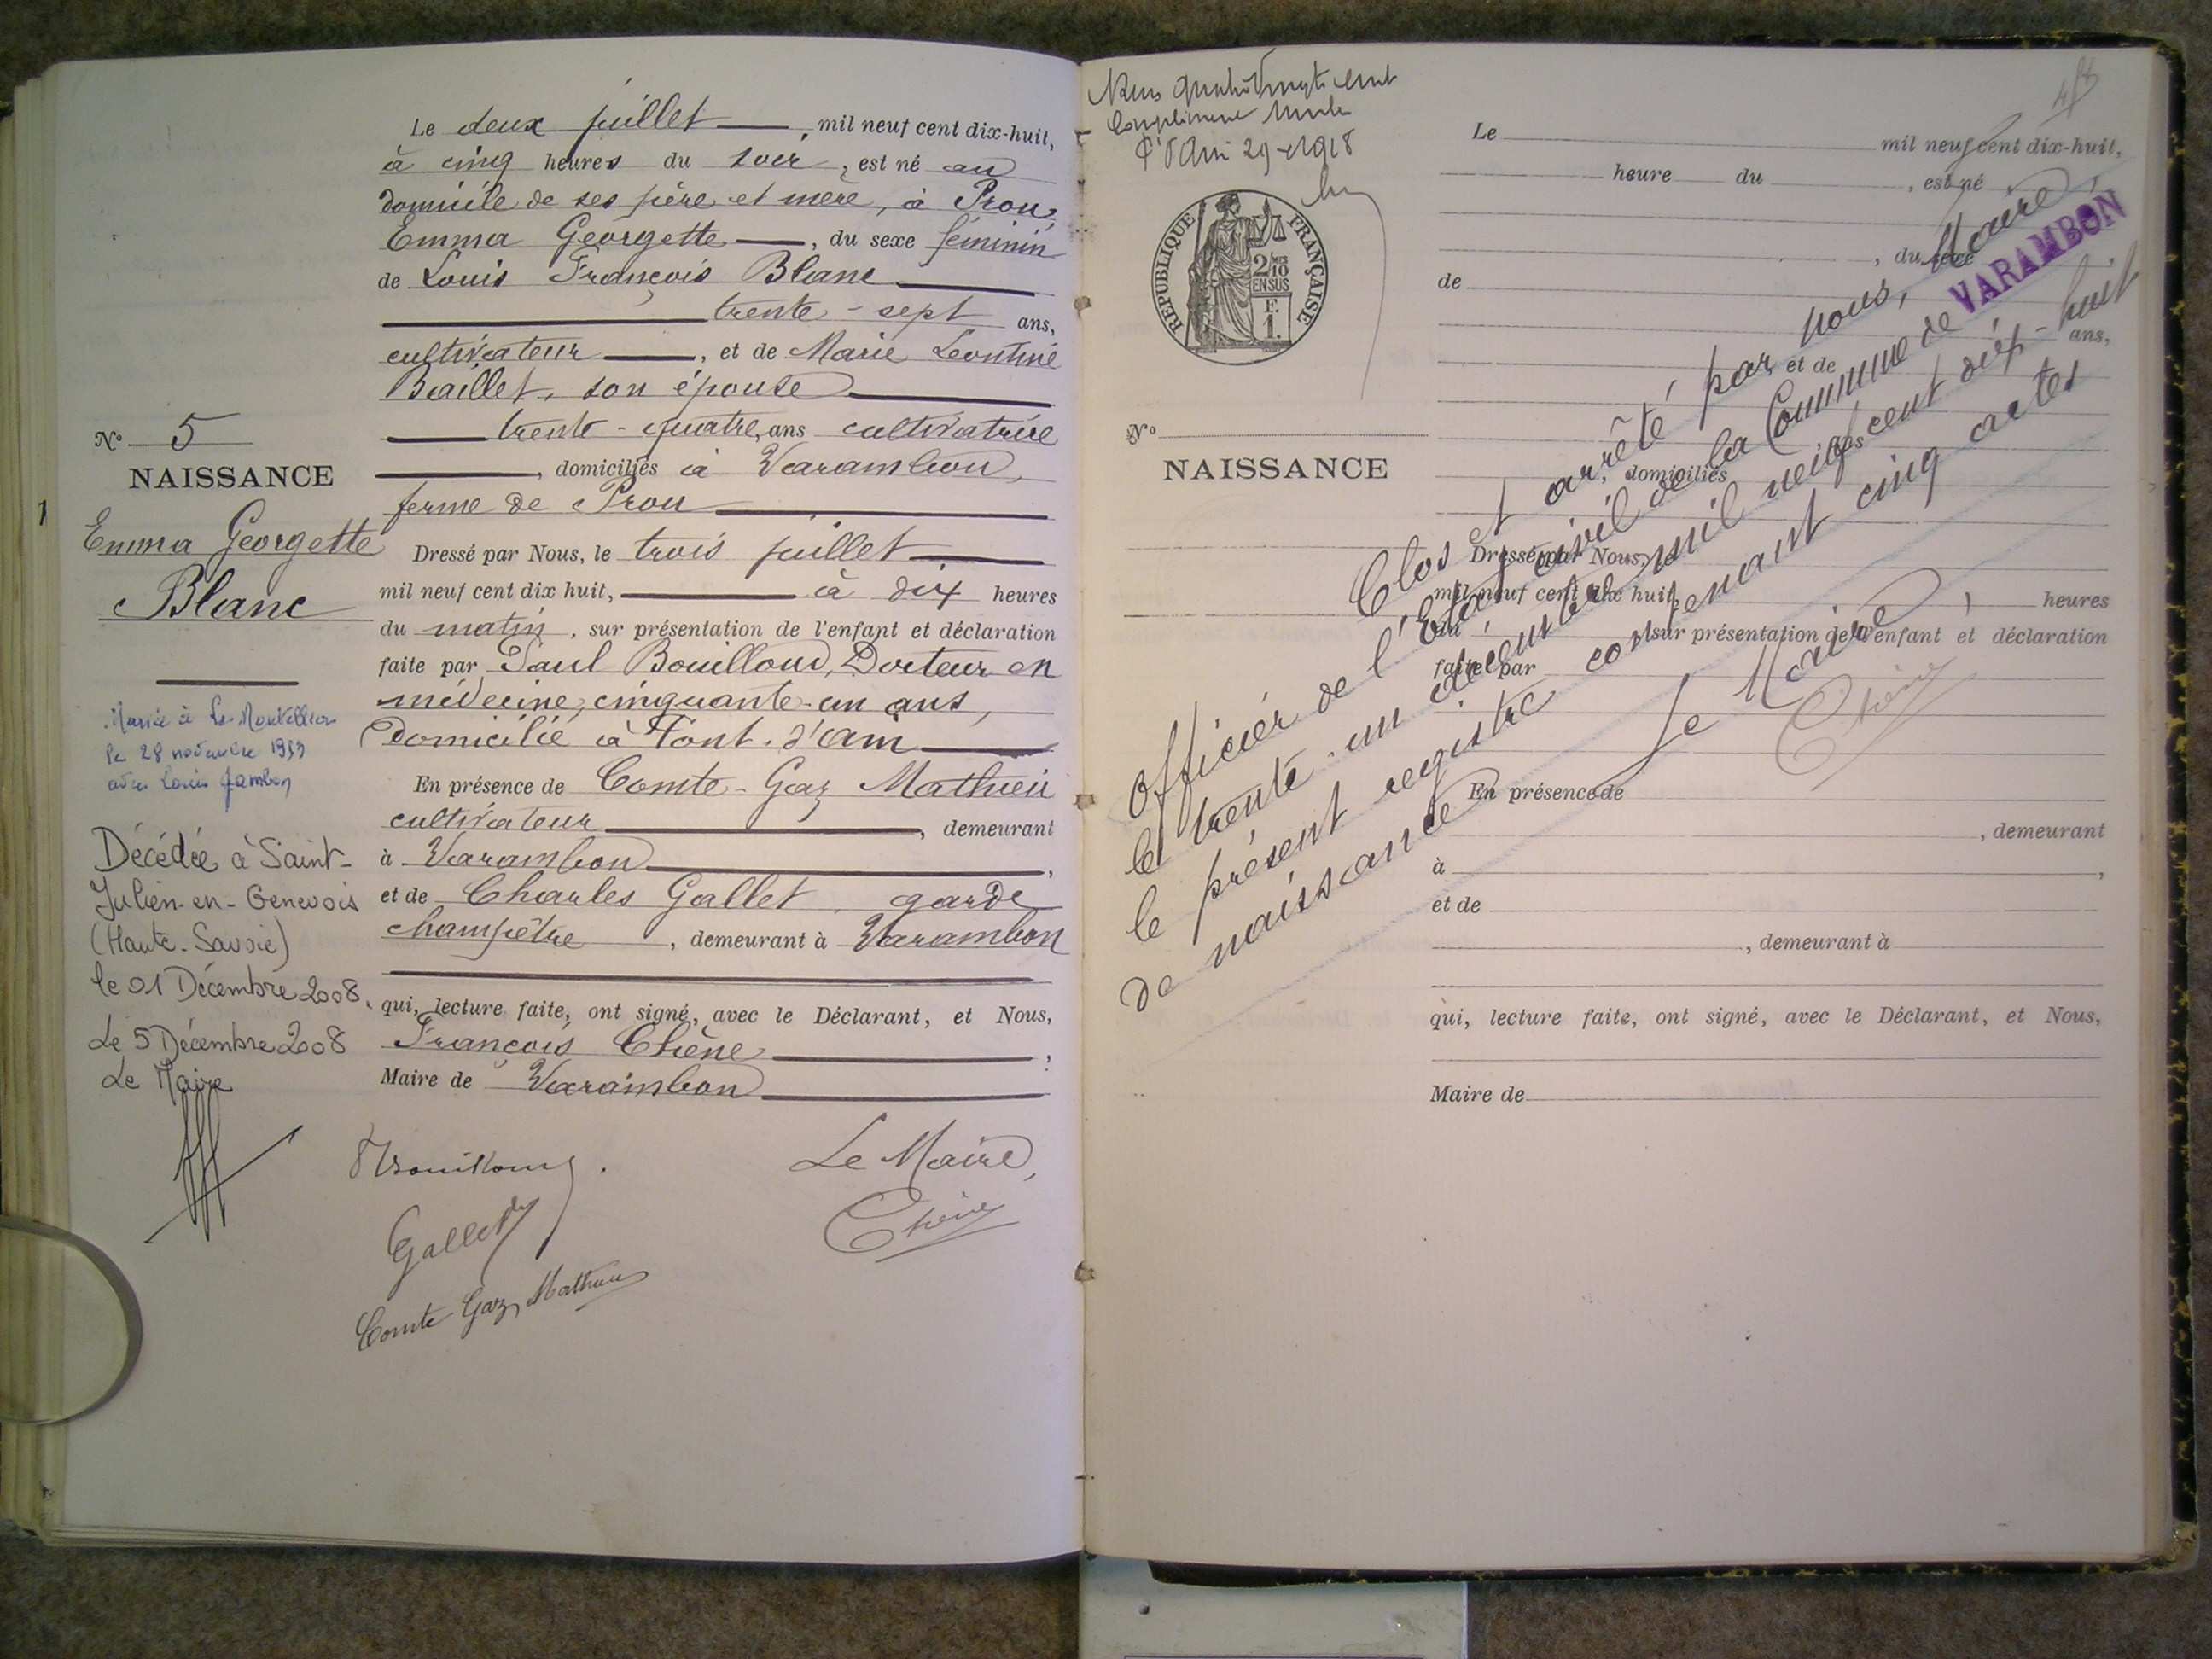 Le deux juillet, mil neuf cent dix-huit,
à cinq heures du soir, est né au
domicile de ses père et mère, à Prou,
Emma Georgette, du sexe féminin
de Louis François Blanc
trente-sept ans,
cultivateur, et de Marie Leontine
Baillet, son épouse
trente-quatre, ans cultivatrice
, domiciliés à Varambon,
ferme de Prou
Dressé par Nous, le trois juillet
mil neuf cent dix huit, à dix heures
du matin, sur présentation de l'enfant et déclaration
faite par Paul Bouilloud, Docteur en
médecine, cinquante-un ans,
Domicilié à Pont-d'ain
En présence de Comte-Gaz Mathieu
cultivateur, demeurant
à Varambon,
et de Charles Gallet, garde
champêtre, demeurant à Varambon
qui, lecture faite, ont signé, avec le Déclarant, et Nous,
François Chêne,
Maire de Varambon
Le Maire,
Gallet
Comte Gaz Mathieu
N° 5
NAISSANCE
Emma Georgette
Blanc
Mariée à Le Montellier
le 28 novembre
avec Louis Jambon
Décédée à Saint-
Julien-en-Genevois
(Haute-Savoie)
le 01 Décembre 2008.
Le 5 Décembre 2008
Le Maire
1918
REPUBLIQUE FRANÇAISE
2/10
EN SUS
F.
1.
N°
NAISSANCE
Le mil neuf cent dix-huit,
heure du , est né
, du sexe
de
ans,
et de
ans
, domiciliés
Dressé par Nous, le
mil neuf cent dix huit, heures
du , sur présentation de l'enfant et déclaration
faite par
En présence de
, demeurant
à ,
et de
, demeurant à
qui, lecture faite, ont signé, avec le Déclarant, et Nous,
Maire de
Clos et arrêté par nous, Maire,
Officier de l'Etat civil de la Commune de VARAMBON
le trente-un décembre mil neuf cent dix-huit
le présent registre contenant cinq actes
de naissance
Le Maire,